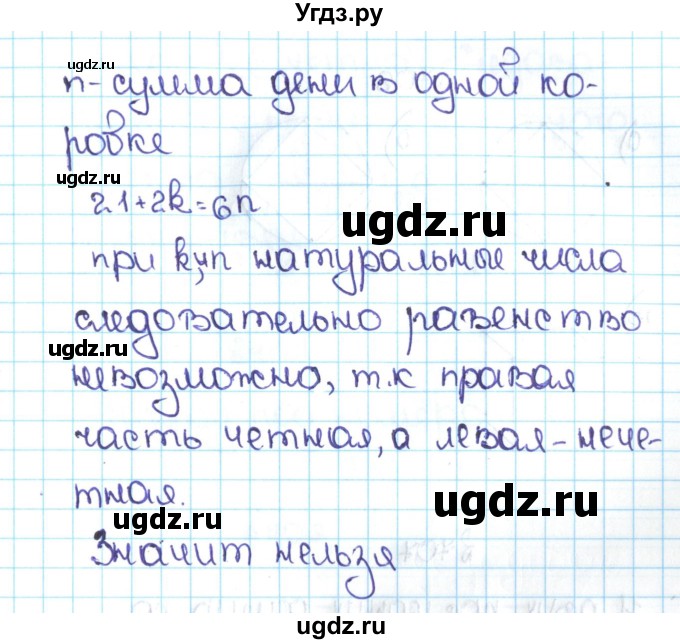 Угдз.ру
ugdz.ru
n - сумма дени в одной ко-
ровке
ugdz.ru
21+2k=6n
ugdz.ru
при k и n натуральные числа
следовательно равенство
ugdz.ru
невозможно, т.к правая
часть четная, а левая - нече-
тная.
ugdz.ru
ugdz.ru
Значит нельзя
ugdz.ru